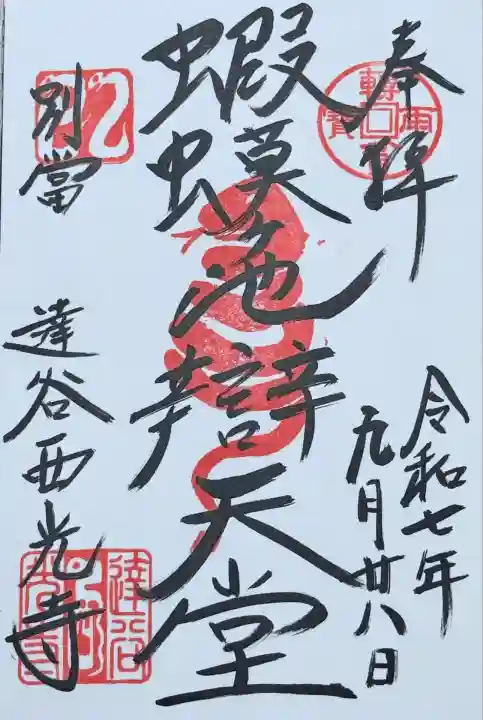 奉拝
令和七年
九月廿八日
蝦蟆池辯天堂
別當
達谷西光寺